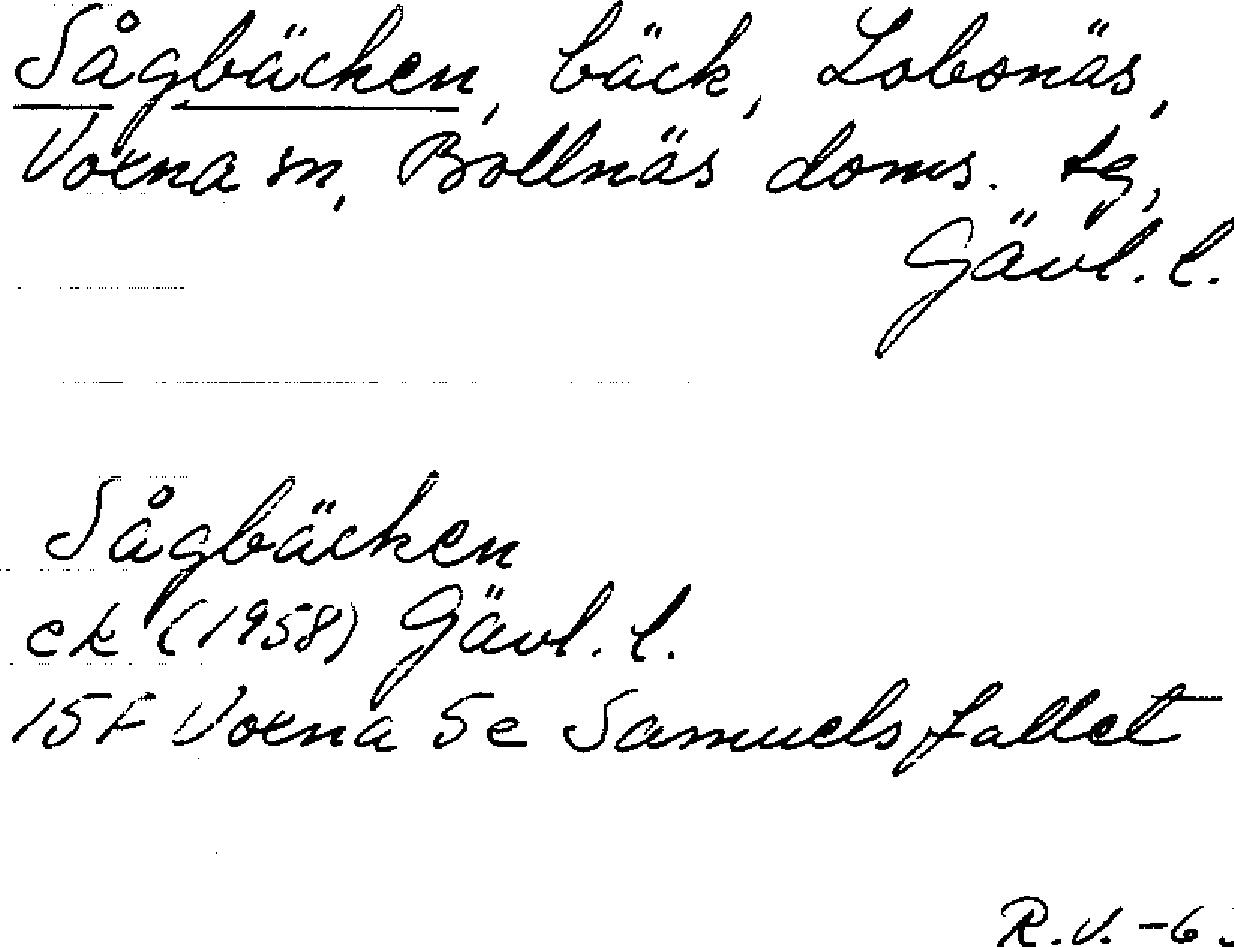 Sågbäcken, bäck, Lobonäs,
Voxna sn, Bollnäs doms. tg,
Gävl. l.
Sågbäcken
ek (1958) Gävl. l.
15F Voxna 5e Samuelsfallet
R.V. -6